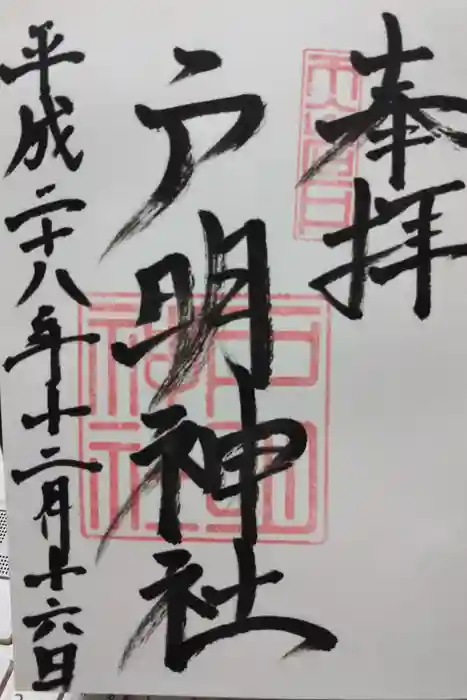 奉拝
戸明神社
戸明
神社
平成二十八年十二月十六日